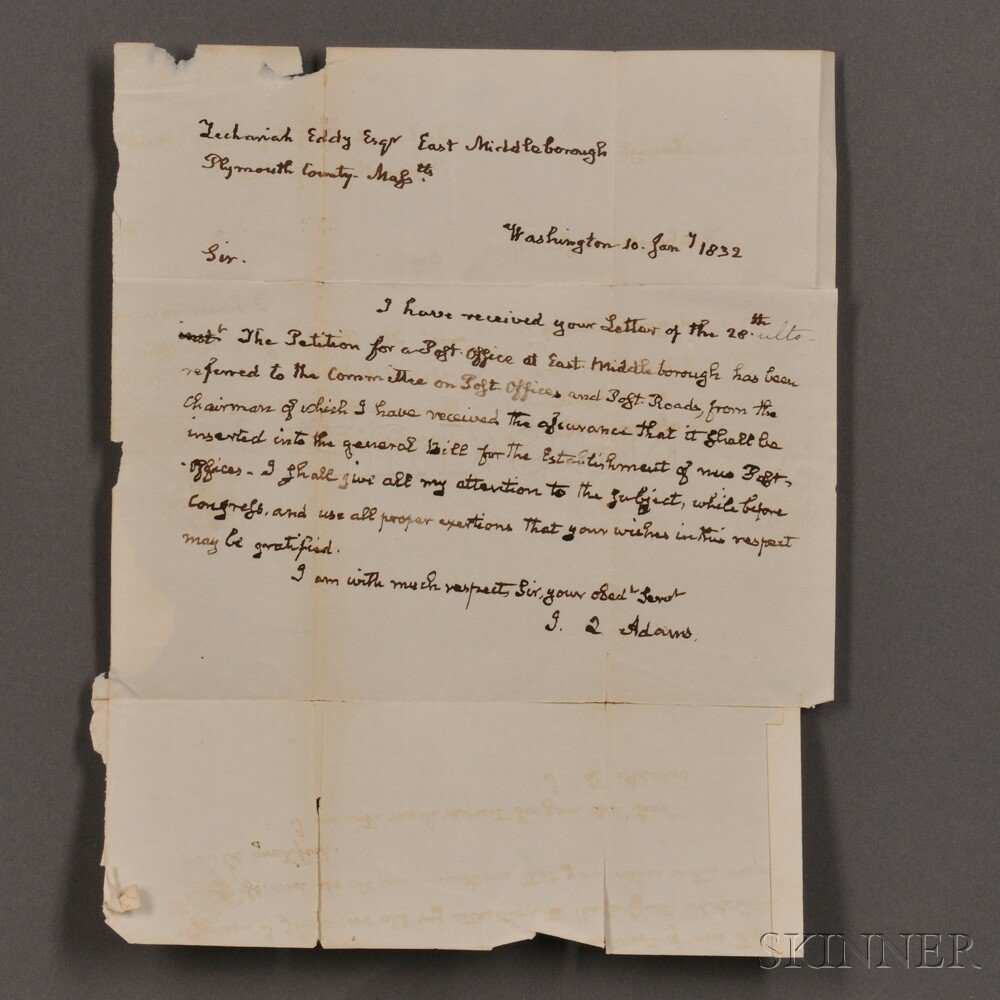 Zechariah Eddy Esqr East Middleborough
Plymouth County. Mass.tts
Washington 10. Jany 1832
Sir.
I have received your Letter of the 28.th ulto.
inst. The Petition for a Post-Office at East Middleborough has been
referred to the Committee on Post Offices and Post Roads, from the
Chairman of which I have received the assurance that it shall be
inserted into the general Bill for the Establishment of new Post-
Offices. I shall give all my attention to the subject, while before
Congress, and use all proper exertions that your wishes in this respect
may be gratified.
I am with much respect, Sir, your obedt Servt
J. Q. Adams.
SKINNER